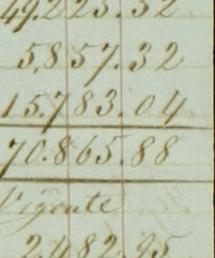 49.225.52
5.857.32
15.783.04
70.865.88
Vigente
2.482.95